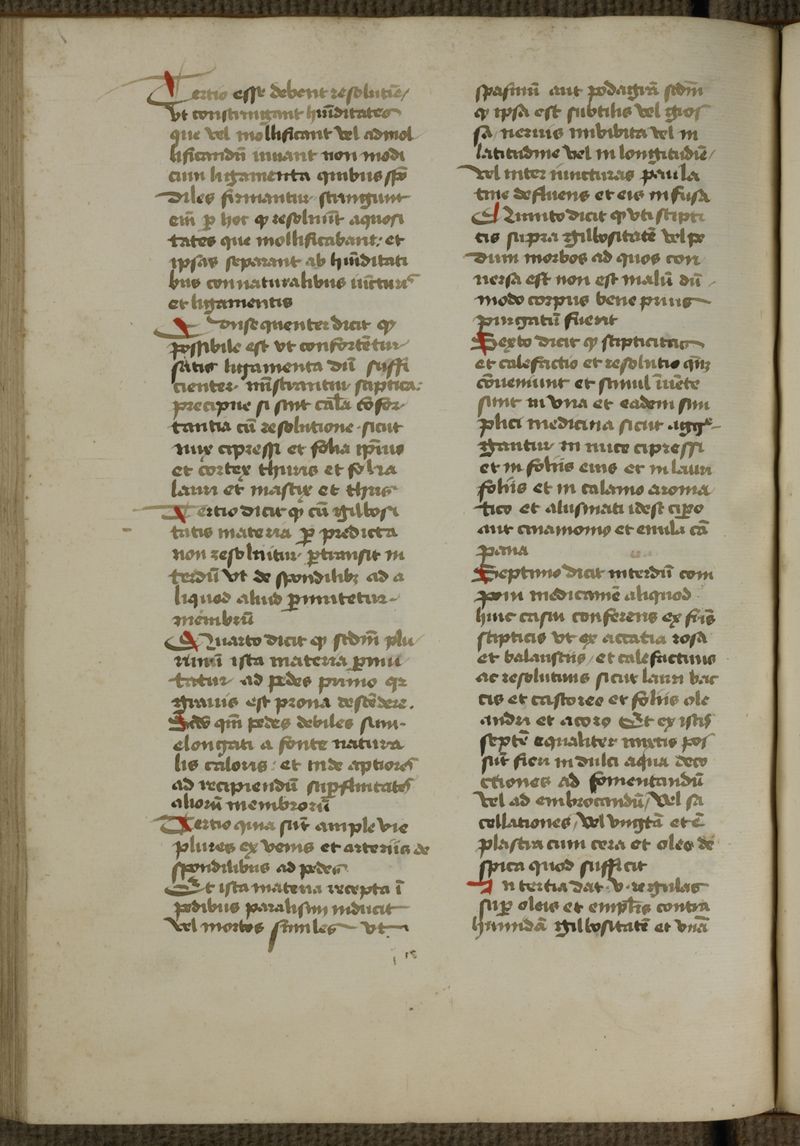 Tertio esse debent resolutiue/
vt constringant hūiditates
que vel mollificant vel ad mol
lificandū iuuant non modi
cum ligamenta quibus spō
diles firmantur stringunt
eīn p hoc q resoluūt aquosi
tates que mollificabant: et
ipsas separant ab hūiditati
bus connaturalibus iūcturis
et ligamentis
Consequenter dicit q
possibile est vt confortētur
satis ligamenta dū suffi
cienter mīstrantur stiptica:
precipue si sint cal'a cōfor
tantia cū resolutione sicut
nux cipressi et folia ipīus
et cortex thuris et folia
lauri et mastix et thus
Tertio dicit q cū gillosi
tatis materia p predicta
non resoluitur ptransit in
terdū vt de spondilibz ad a
liquod aliud pmutetur
membrū
Quarto dicit q scdm plu
rimū ista materia pmu
tatur ad pedes primo qz
grauis est prona descēdere.
Scdo qm pedes debiles sunt
elongati a fonte natura
lis caloris: et inde aptiores
ad recipiendū supfluitates
aliorū membrorū
Tertio quia sūt ample vie
plures ex venis et arteriis de
spondilibus ad pedes
Et ista materia recepta ī
pedibus paralisim inducit
vel morbos similes vt
spasmū aut podagrā scdm
q ipsa est subtilis vel gros
sa neruis imbibita vel in
latitudine vel in longitudīe/
vel inter iuncturas paula
tine defluens et eis infusa
Quinto dicit q vti stipti
cis supra gillositatē vel pe
dum morbos ad quos con
uersa est non est malū dū
modo corpus bene prius
purgatū fuerit
Sexto dicit q stipticitas
et calefactio et resolutio qnz
cōueniunt et simul iūcte
sunt in vna et eadem sim
plici medicina sicut aggre
gantur in nuce cipressi
et in foliis eius et in lauri
foliis et in calamo aroma
tico et alusmati idest cipo
aut cinamomo et enula cā
pana
Septimo dicit interdū com
poni medicamē aliquod
huic casui conferens ex siīs
stipticis vt ex accatia rosa
et balaustiis / et calefactiuis
ac resolutiuis sicut lauri bac
cis et castoreo et foliis ole
andri et acoro Et ex istis
septē equaliter mixtis pos
sūt fieri in dulci aqua deco
ctiones ad fomentandū
vel ad embrocandū / vel sa
cellationes / vel vngtā et ē
plastra cum cera et oleo de
spica quod sufficit
In tertia dat .v. regulas
sup oleis et emplīs contra
humidā gillositatē et vnā